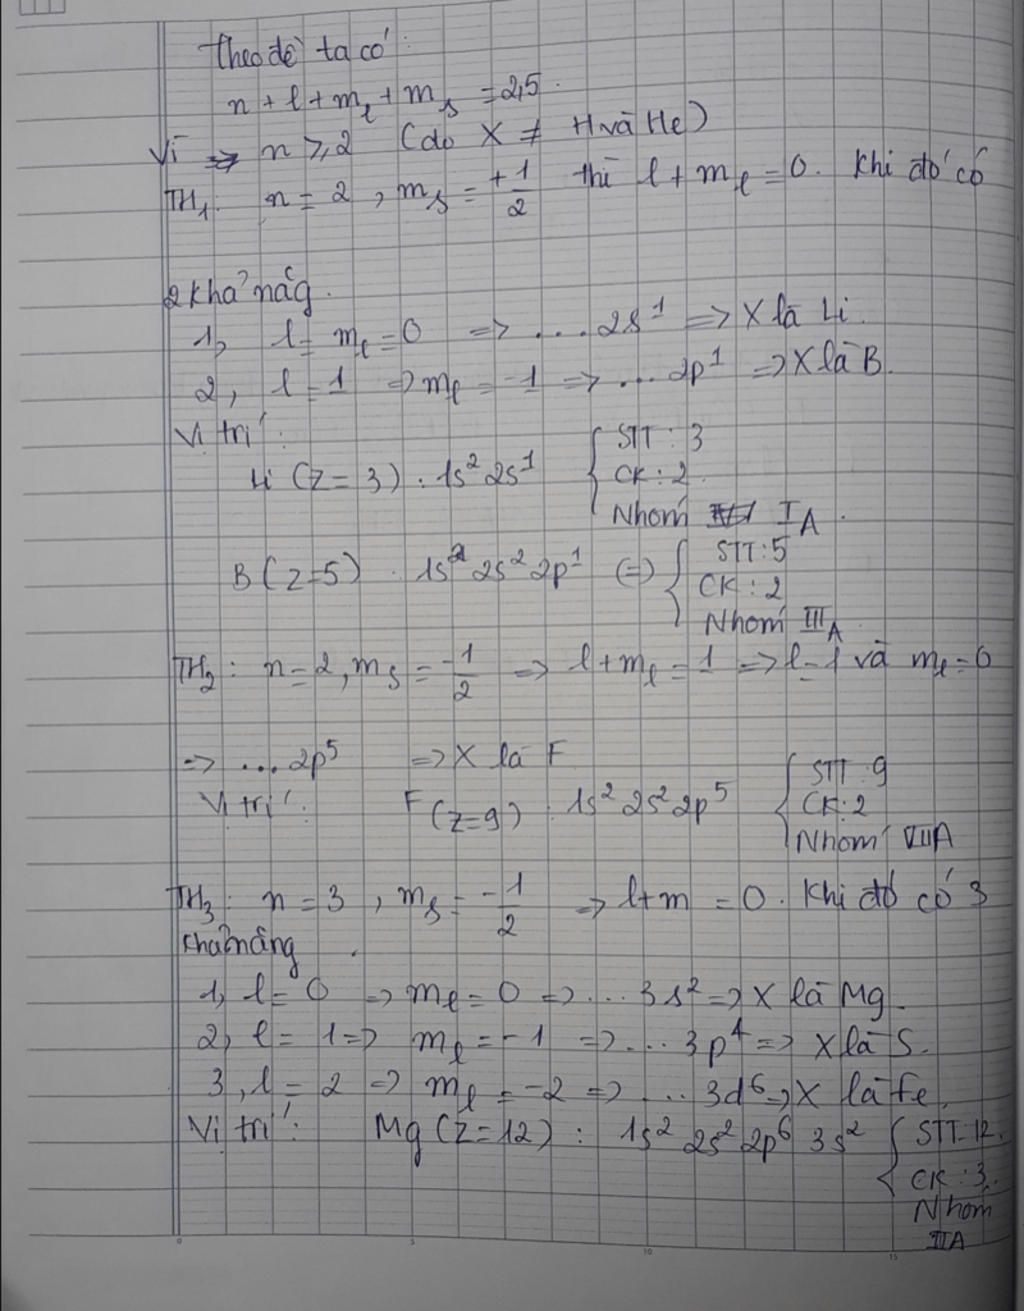 Theo đề ta có:
n + l + m_l + m_s = 2,5.
Vì => n ≥ 2 (do X ≠ H và He)
TH1: n = 2, m_s = +1/2 thì l + m_l = 0. Khi đó có
2 khả năng.
1, l = m_l = 0 => ... 2s¹ => X là Li.
2, l = 1 => m_l = -1 => ... 2p¹ => X là B.
Vị trí:
Li (Z = 3) : 1s² 2s¹ { STT : 3
CK : 2.
Nhóm IA.
B (Z=5) : 1s² 2s² 2p¹ (=) { STT : 5
CK : 2
Nhóm IIIA
TH2: n = 2, m_s = -1/2 => l + m_l = 1 => l = 1 và m_l = 0
=> ... 2p⁵ => X là F
Vị trí: F (Z=9) : 1s² 2s² 2p⁵ { STT : 9
CK : 2
Nhóm VIIA
TH3: n = 3, m_s = -1/2 => l + m = 0. Khi đó có 3
khả năng.
1, l = 0 => m_l = 0 => ... 3s² => X là Mg.
2, l = 1 => m_l = -1 => ... 3p⁴ => X là S.
3, l = 2 => m_l = -2 => ... 3d⁶ => X là Fe.
Vị trí: Mg (Z=12) : 1s² 2s² 2p⁶ 3s² { STT = 12.
CK : 3.
Nhóm
IIA
0 5 10 15